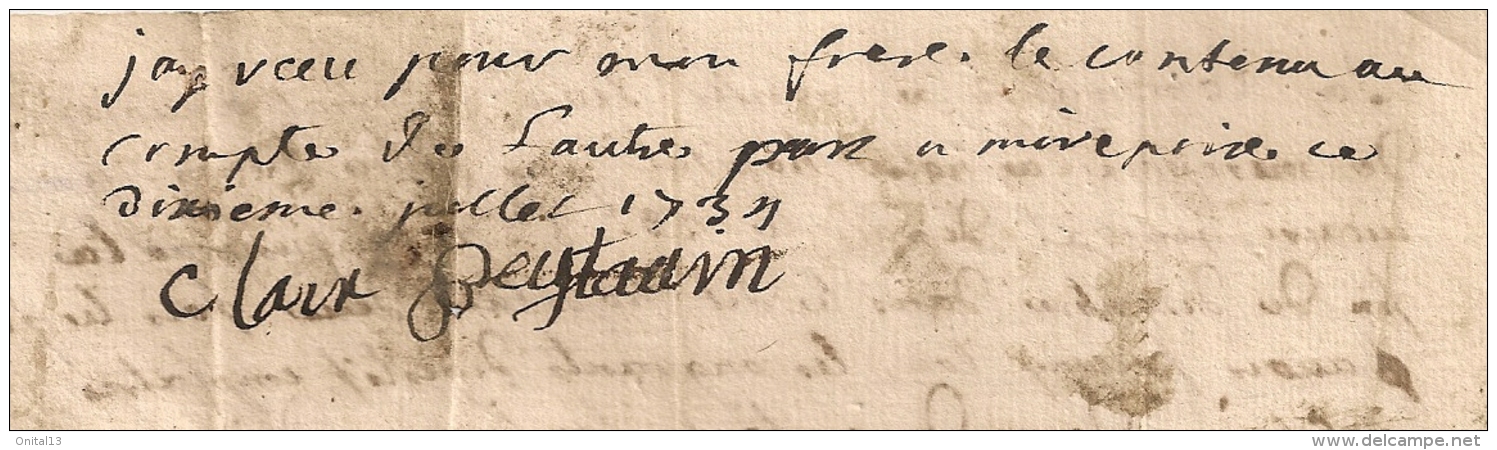 jay rœeu pour mon frere le contenu au
compte de Lautre part a mirepoix ce
dixieme juillet 173
Clair
Onital13
www.delcampe.net